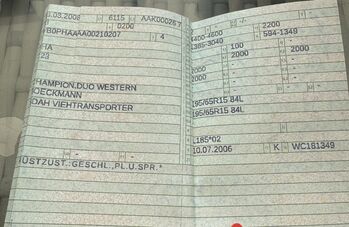 .03.2008 6115 AAK00026
0200
B0PHAAAA00210207 4
HA
23
CHAMPION,DUO WESTERN
BOECKMANN
OAH VIEHTRANSPORTER
- -
IUSTZUST.:GESCHL.,PL.U.SPR.*
- -/- 2200
1400 -1600 594-1349
1385-3040
- 100 -
2000 - 2000 -
2000 - -
- - -
195/65R15 84L
195/65R15 84L
-
L185*02
10.07.2006 K WC181349
- -